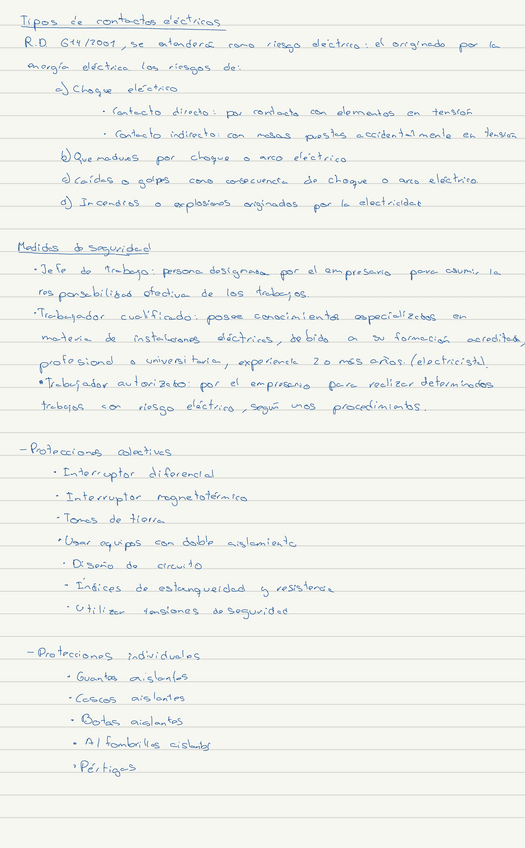 Tipos de contactos eléctricos
R.D. 614/2001, se entenderá como riesgo eléctrico: el originado por la
energía eléctrica los riesgos de:
a) Choque eléctrico
· Contacto directo: por contacto con elementos en tensión
· Contacto indirecto: con masas puestas accidentalmente en tensión
b) Quemaduras por choque o arco eléctrico
c) Caídas o golpes como consecuencia de choque o arco eléctrico
d) Incendios o explosiones originados por la electricidad
Medidas de seguridad
· Jefe de trabajo: persona designada por el empresario para asumir la
responsabilidad efectiva de los trabajos.
· Trabajador cualificado: posee conocimientos especializados en
materia de instalaciones eléctricas, debido a su formación acreditada,
profesional o universitaria, experiencia 2 o más años. (electricista).
· Trabajador autorizado: por el empresario para realizar determinados
trabajos con riesgo eléctrico, según unos procedimientos.
- Protecciones colectivas
· Interruptor diferencial
· Interruptor magnetotérmico
· Tomas de tierra
· Usar equipos con doble aislamiento
· Diseño de circuito
· Índices de estanqueidad y resistencia
· Utilizar tensiones de seguridad
- Protecciones individuales
· Guantes aislantes
· Cascos aislantes
· Botas aislantes
· Alfombrillas aislantes
· Pértigas